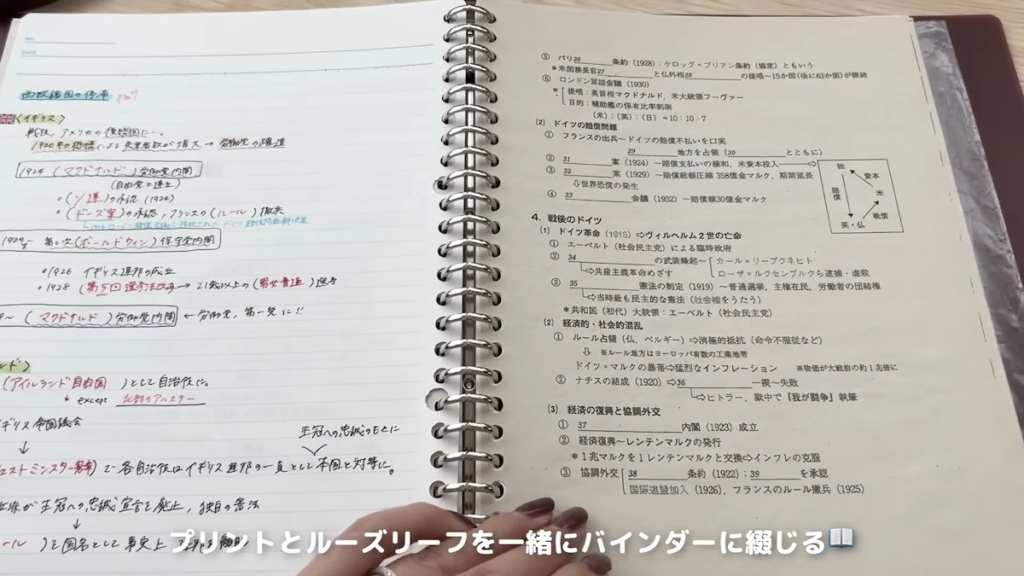 NO.
DATE
西欧諸国の停滞
<イギリス>
戦後、アメリカの債務国に…。
1920年の恐慌による失業者数が増大 → 労働党の躍進
1924 (マクドナルド) 労働党内閣
(自由党と連立)
○(ソ連)の承認 (1924)
○(ドーズ案)の承認、フランスの(ルール)撤兵
第2次(ボールドウィン)保守党内閣
○1926 イギリス連邦の成立
○1928 (第五回選挙法改正) → 21歳以上の(男女普通)選挙
(マクドナルド)労働党内閣 ← 労働党、第一党に!!
(アイルランド自由国 )として自治領に。
except 北部のアルスター
ギリス帝国議会
王冠への忠誠のもとに
ェストミンスター憲章)で各自治領はイギリス連邦の一員として本国と対等に。
王冠への忠誠宣言を廃止、独自の憲法
ール )を国名として事実上
⑤ パリ26 条約(1928):ケロッグ・ブリアン条約(協定)ともいう
*米国務長官27 と仏外相28 の提唱~15か国(後に63か国)が締結
⑥ ロンドン軍縮会議(1930)
*提唱:英首相マクドナルド、米大統領フーヴァー
目的:補助艦の保有比率制限
(米):(英):(日)=10:10:7
(2) ドイツの賠償問題
① フランスの出兵~ドイツの賠償不払いを口実
29 地方を占領(30 とともに)
② 31 案(1924)~賠償支払いの緩和、米資本投入
③ 32 案(1929)~賠償総額圧縮 358億金マルク、期間延長
⇩世界恐慌の発生
④ 33 会議(1932)~賠償額30億金マルク
独
資本
賠償
米
戦債
英・仏
4. 戦後のドイツ
(1) ドイツ革命(1918)⇨ヴィルヘルム2世の亡命
① エーベルト(社会民主党)による臨時政府
② 34 の武装蜂起~ カール=リープクネヒト
⇨共産主義革命めざす ローザ=ルクセンブルクら逮捕・虐殺
③ 35 憲法の制定(1919)~普通選挙、主権在民、労働者の団結権
⇨当時最も民主的な憲法(社会権をうたう)
*共和国(初代)大統領:エーベルト(社会民主党)
(2) 経済的・社会的混乱
① ルール占領(仏、ベルギー)⇨消極的抵抗(命令不服従など)
⇩ ※ルール地方はヨーロッパ有数の工業地帯
ドイツ・マルクの暴落⇨猛烈なインフレーション ※物価が大戦前の約1兆倍に
② ナチスの結成(1920)⇨36 一揆~失敗
⇨ヒトラー、獄中で『我が闘争』執筆
(3) 経済の復興と協調外交
① 37 内閣(1923)成立
② 経済復興~レンテンマルクの発行
*1兆マルクを1レンテンマルクと交換⇨インフレの克服
③ 協調外交 38 条約(1922):39 を承認
国際連盟加入(1926)、フランスのルール撤兵(1925)
プリントとルーズリーフを一緒にバインダーに綴じる📖